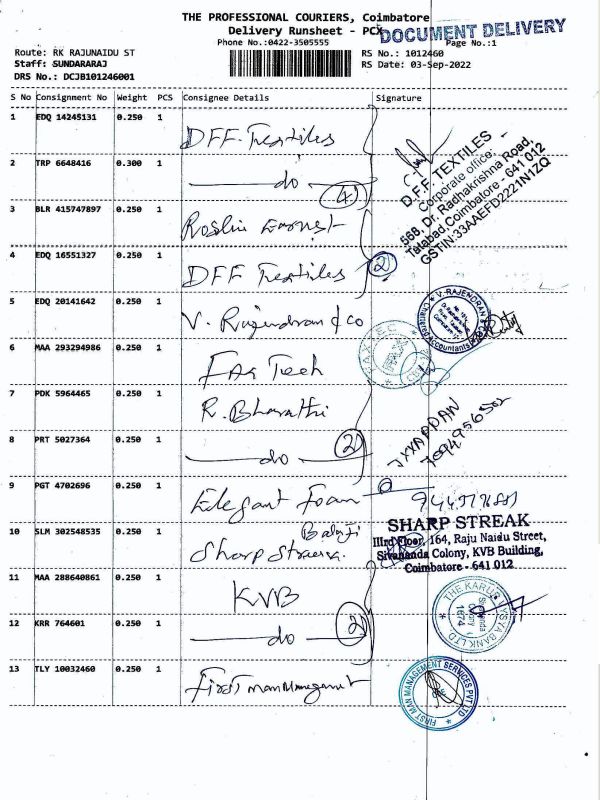 THE PROFESSIONAL COURIERS, Coimbatore
Delivery Runsheet - PCX
DOCUMENT DELIVERY
Phone No.:0422-3505555
Page No.:1
Route: RK RAJUNAIDU ST
RS No.: 1012460
Staff: SUNDARARAJ
RS Date: 03-Sep-2022
DRS No.: DCJB101246001
S No Consignment No Weight PCS Consignee Details Signature
1 EDQ 14245131 0.250 1 DFF Textiles
2 TRP 6648416 0.300 1 do 4
D.F.F. TEXTILES
Corporate office:
568, Dr. Radhakrishna Road,
Tatabad, Coimbatore - 641 012
GSTIN:33AAEFD2221N1ZQ
3 BLR 415747897 0.250 1
4 EDQ 16551327 0.250 1 DFF Textiles 2
5 EDQ 20141642 0.250 1 V. Rajendran & co
V. RAJENDRAN & CO
Chartered Accountants
6 MAA 293294986 0.250 1 Tech
7 PDK 5964465 0.250 1 R. Bharathi
8 PRT 5027364 0.250 1 do 2
IYYAPPAN
9 PGT 4702696 0.250 1 Elegant Foam
10 SLM 302548535 0.250 1 Balaji Sharp
SHARP STREAK
IIIrd Floor, 164, Raju Naidu Street,
Sivananda Colony, KVB Building,
Coimbatore - 641 012
11 MAA 288640861 0.250 1 KVB
12 KRR 764601 0.250 1 do 2
THE KARUR VYSYA BANK LTD
Sivananda
Colony
1674
13 TLY 10032460 0.250 1 First man Management
FIRST MAN MANAGEMENT SERVICES PVT LTD